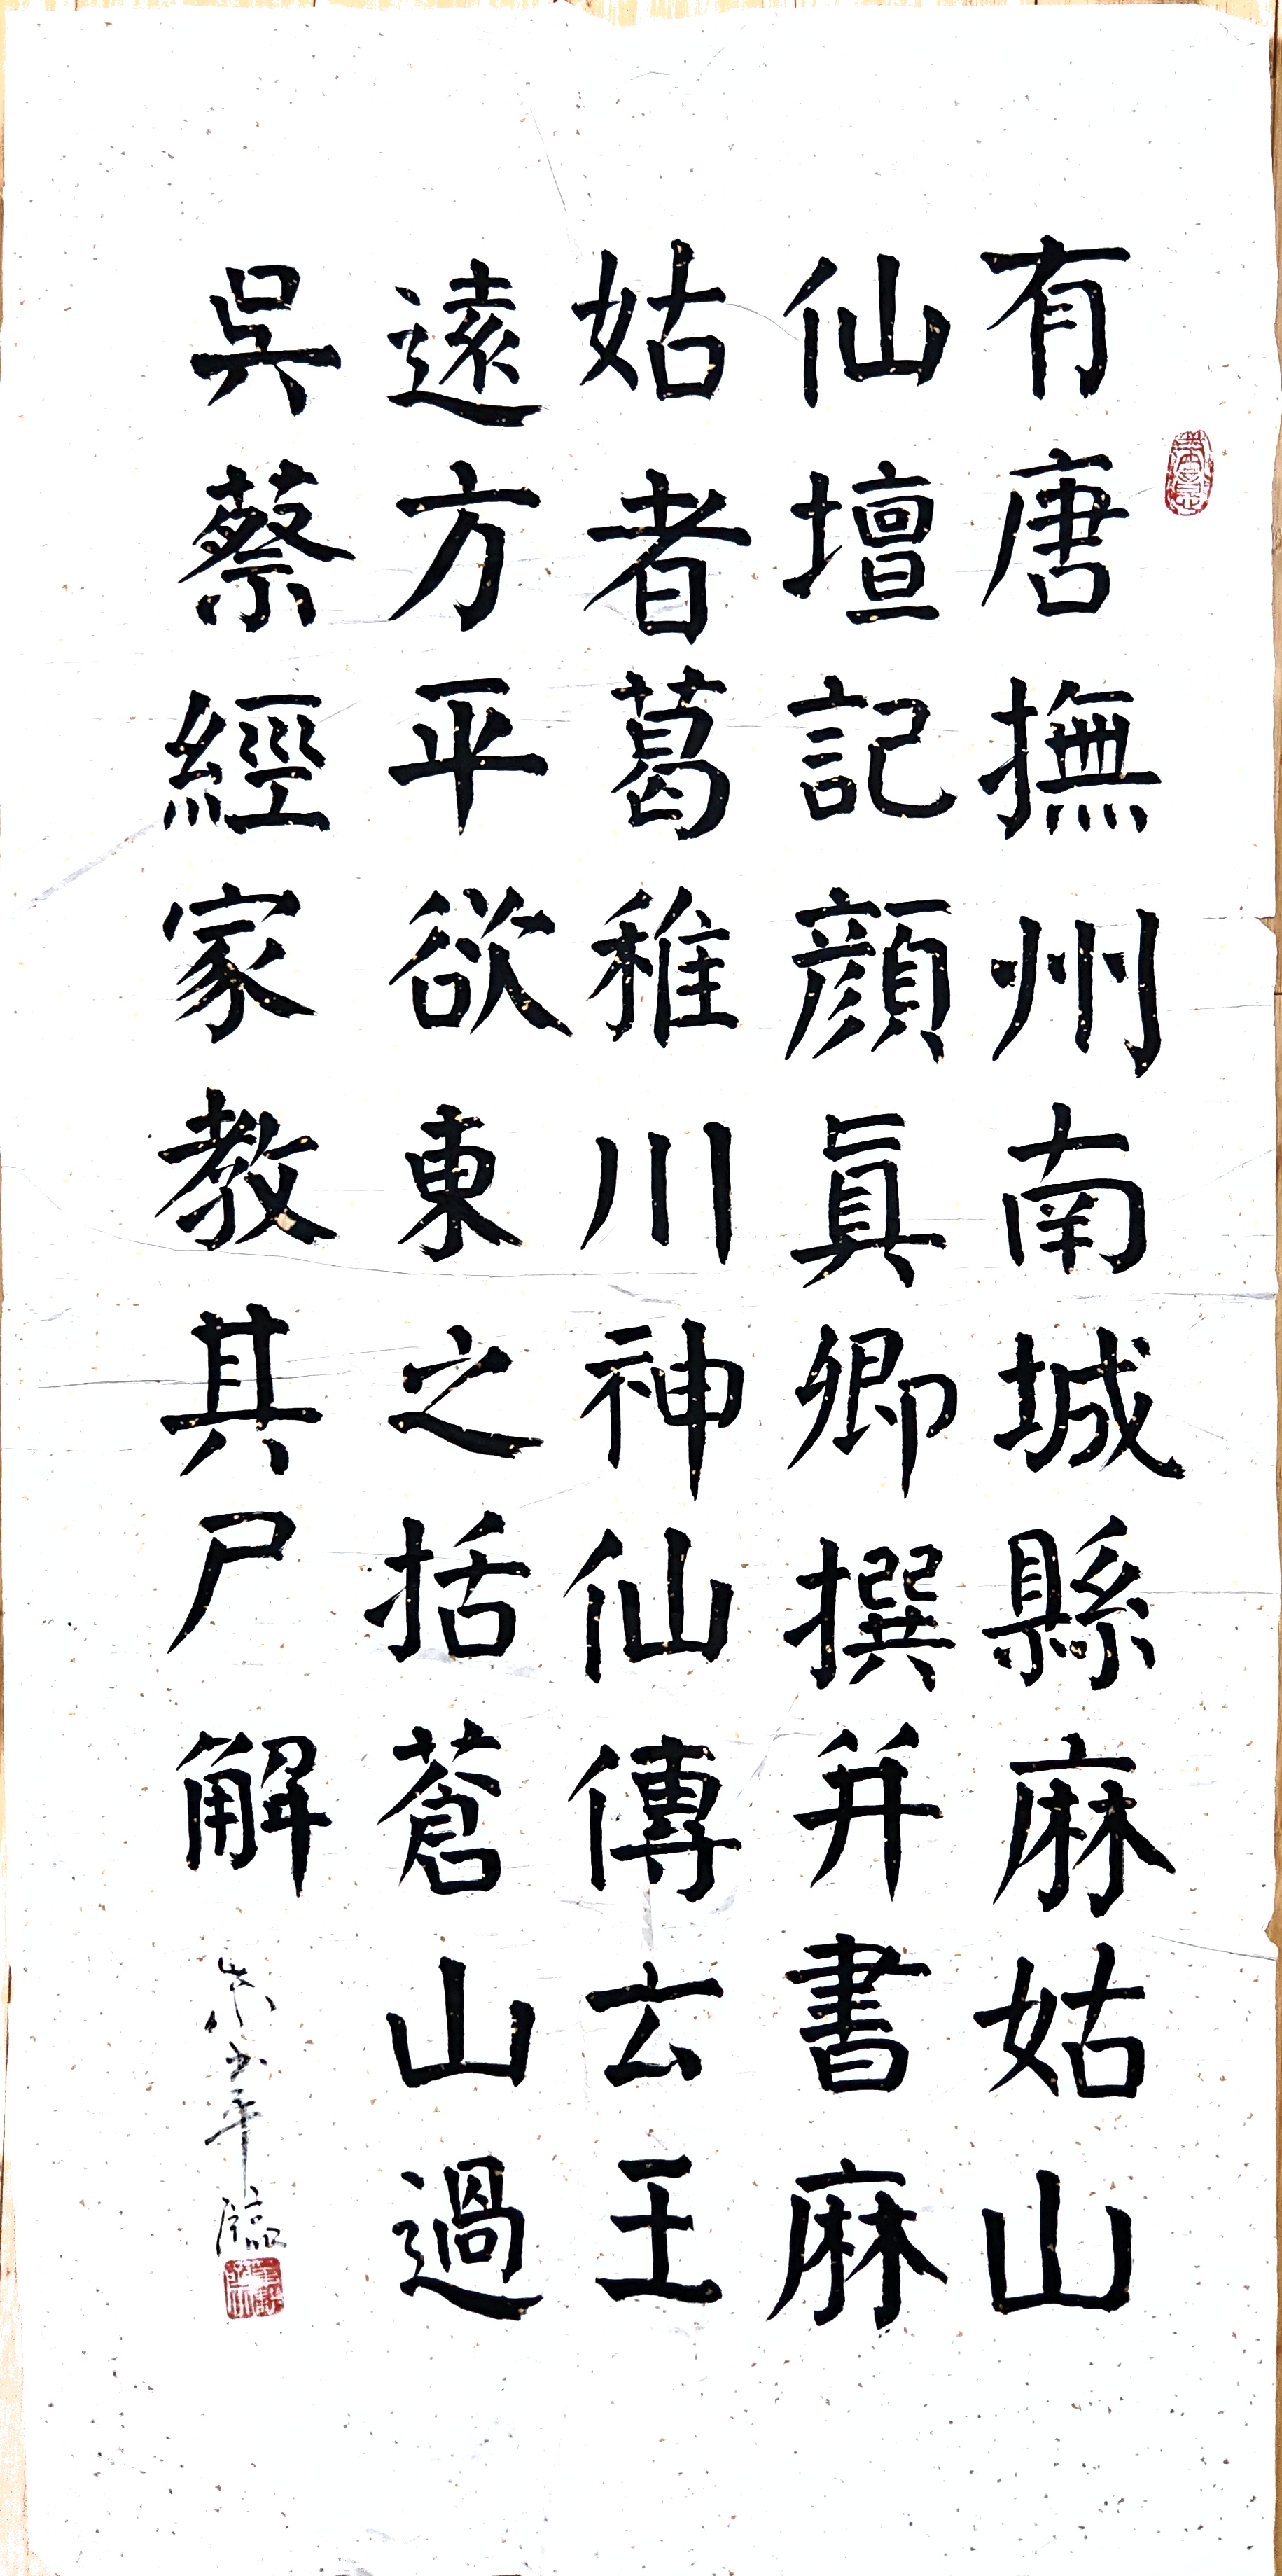 有唐撫州南城縣麻姑山
仙壇記顏眞卿撰并書麻
姑者葛稚川神仙傳云王
遠方平欲東之括蒼山過
吳蔡經家教其尸解
臨